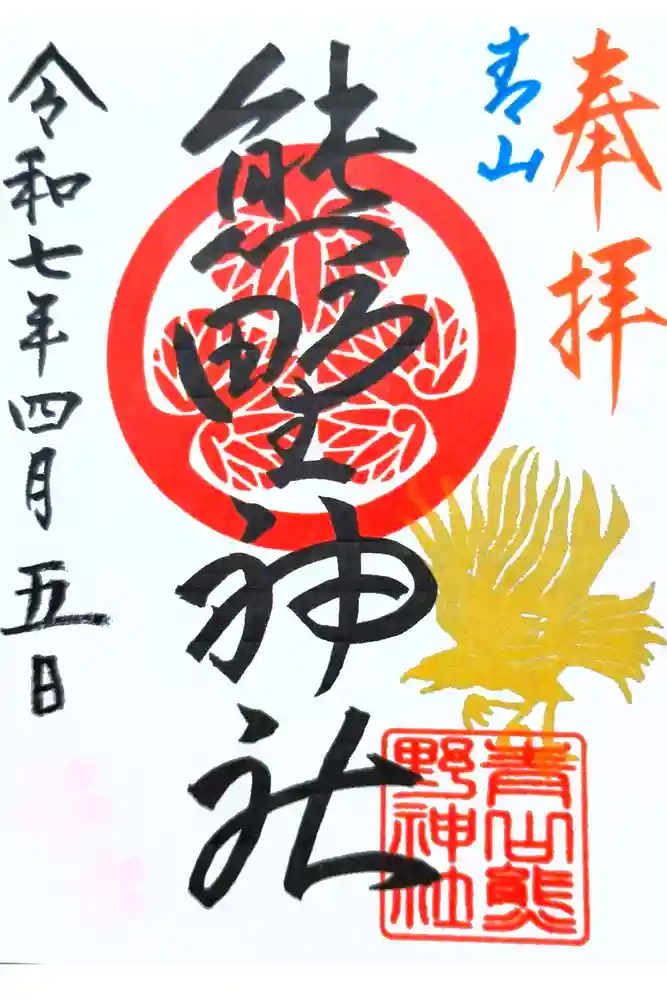 奉拝
青山
熊野神社
青山熊
野神社
令和七年四月五日